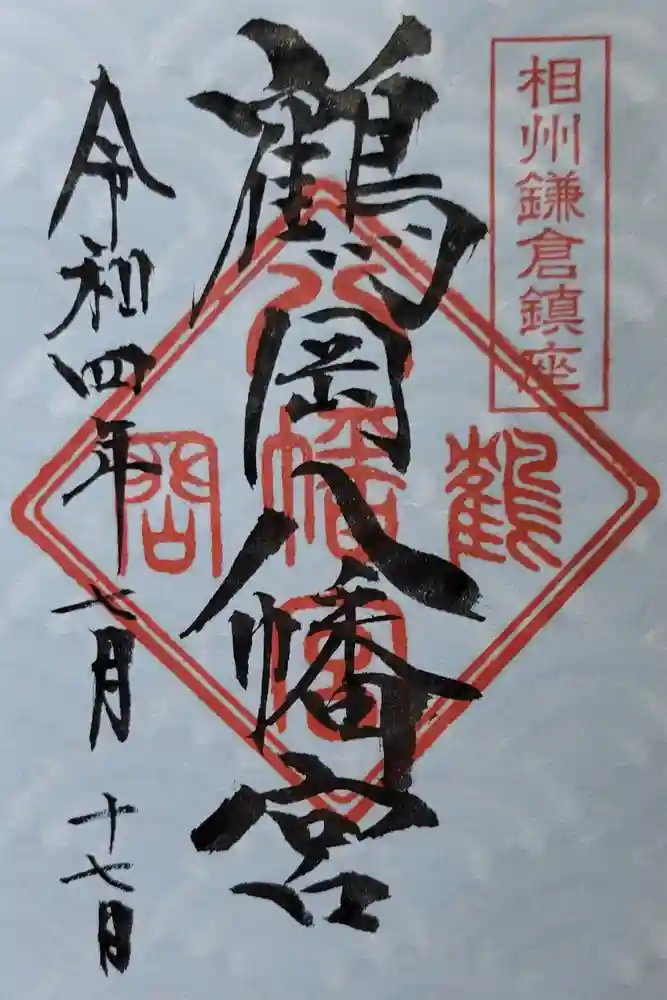 相州鎌倉鎮座
鶴岡八幡宮
鶴
岡
八
幡
宮
令和四年七月十七日